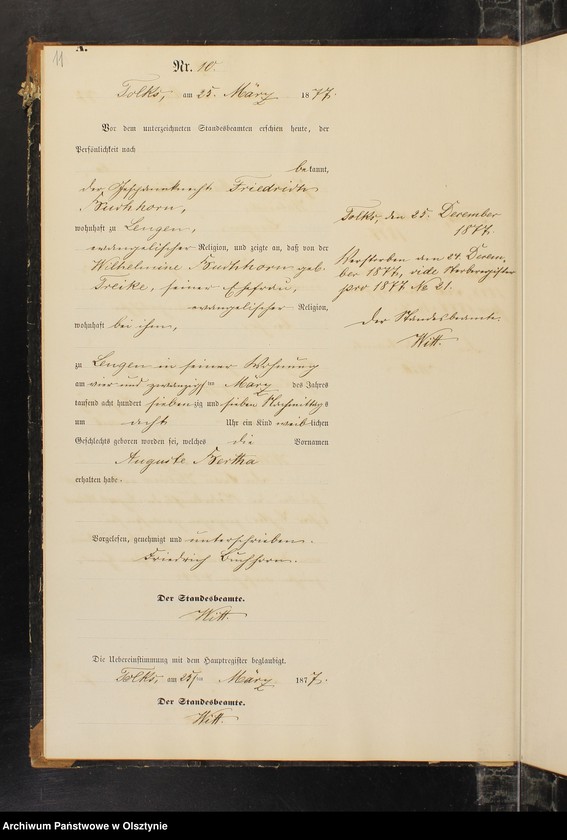 11
A.
Nr. 10.
Tolks, am 25. März 1877.
Vor dem unterzeichneten Standesbeamten erschien heute, der
Persönlichkeit nach
bekannt,
der Gespannknecht Friedrich
Buchhorn,
wohnhaft zu Lengen,
evangelischer Religion, und zeigte an, daß von der
Wilhelmine Buchhorn geb.
Treike, seiner Ehefrau,
evangelischer Religion,
wohnhaft bei ihm,
zu Lengen in seiner Wohnung
am vier und zwanzigsten März des Jahres
tausend acht hundert siebenzig und sieben Nachmittags
um acht Uhr ein Kind weiblichen
Geschlechts geboren worden sei, welches die Vornamen
Auguste Bertha
erhalten habe.
Vorgelesen, genehmigt und unterschrieben.
Friedrich Buchhorn.
Der Standesbeamte.
Witt.
Die Uebereinstimmung mit dem Hauptregister beglaubigt.
Tolks, am 25ten März 1877.
Der Standesbeamte.
Witt.
Tolks, den 25. December
1877.
Verstorben den 24. Decem-
ber 1877, vide Sterberegister
pro 1877 No 21.
Der Standesbeamte.
Witt.
Archiwum Państwowe w Olsztynie